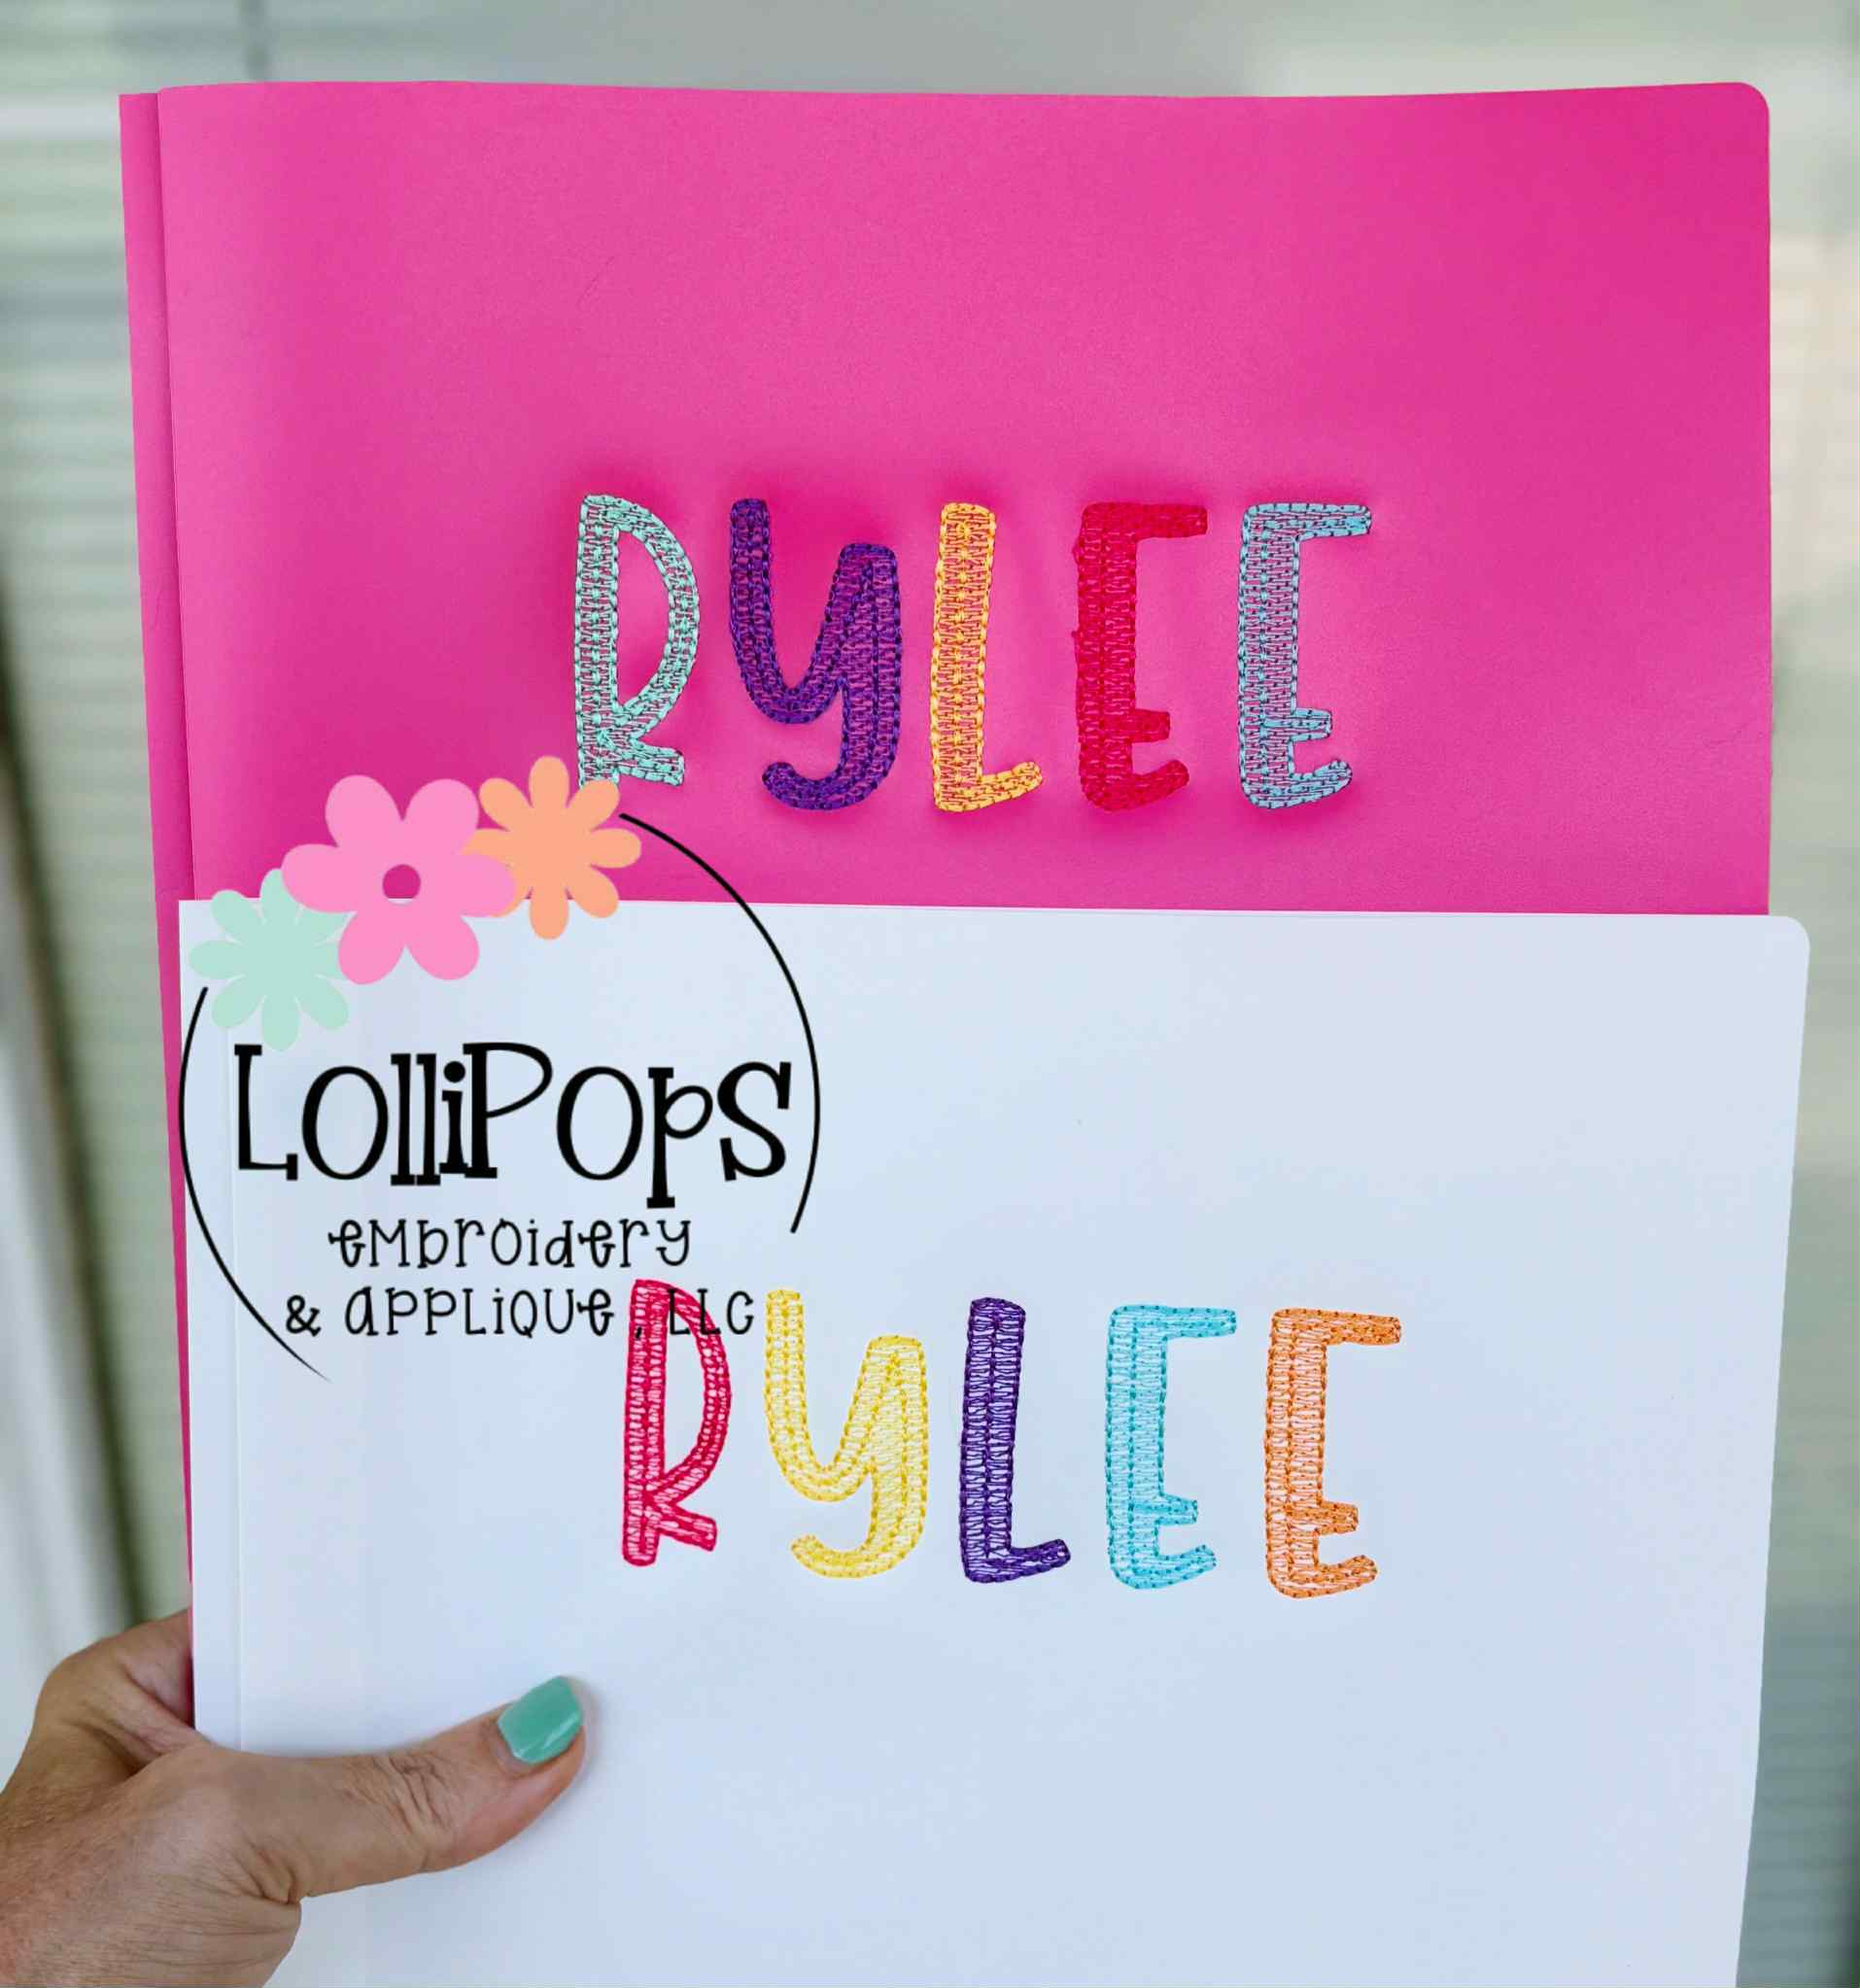 RYLEE
LOLLiPOPS
embroidery
& APPLiQUe, LLC
RYLEE